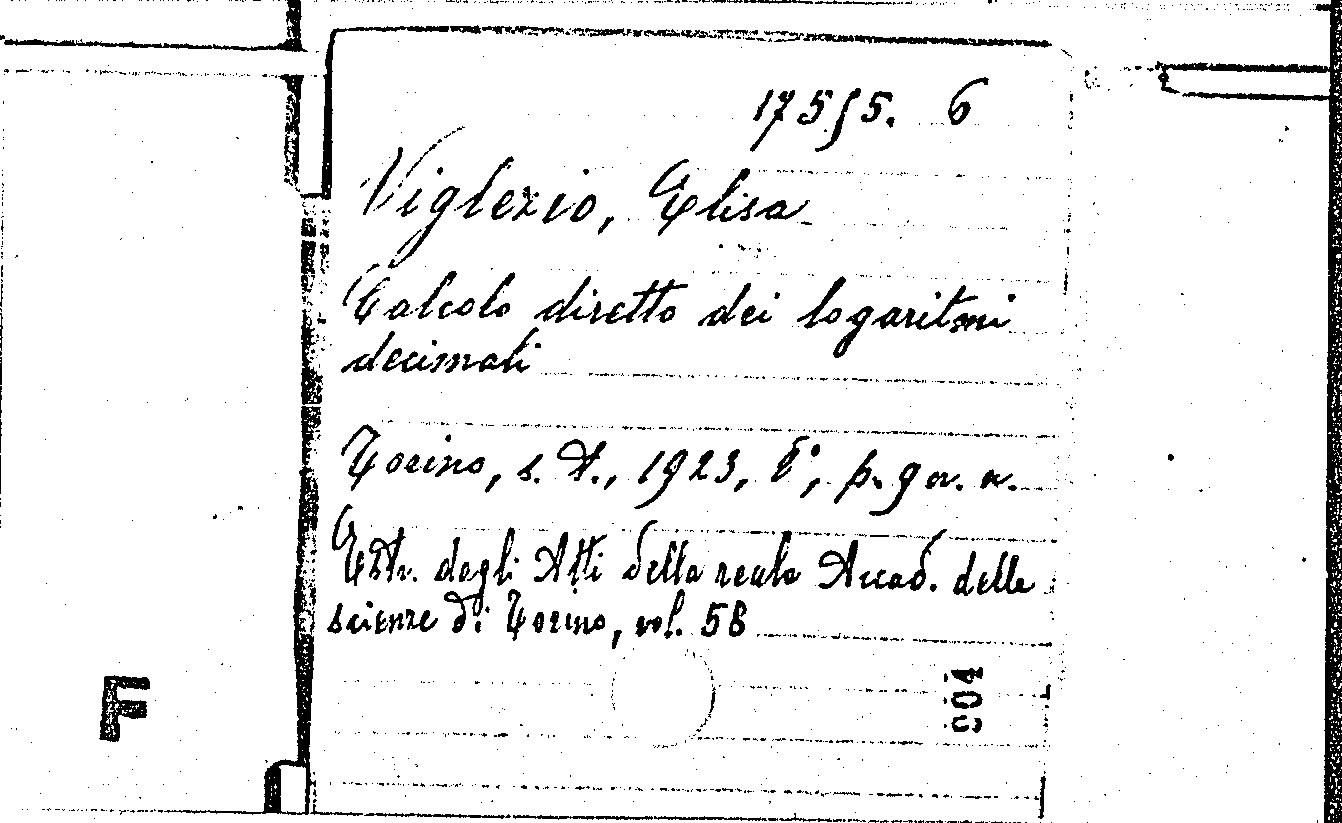 17555. 6
Viglezio, Elisa
Calcolo diretto dei logaritmi
decimali
Torino, s. t., 1923, 8°, p. 9 n. n.
Estr. dagli Atti della reale Accad. delle
scienze di Torino, vol. 58
004
F